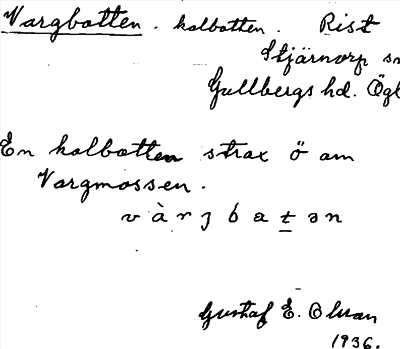 Vargbotten. kolbotten. Rist
Stjärnorp sn
Gullbergs hd. Ögl
En kolbotten strax ö om
Vargmossen.
Gustaf E. Olsson
1936.